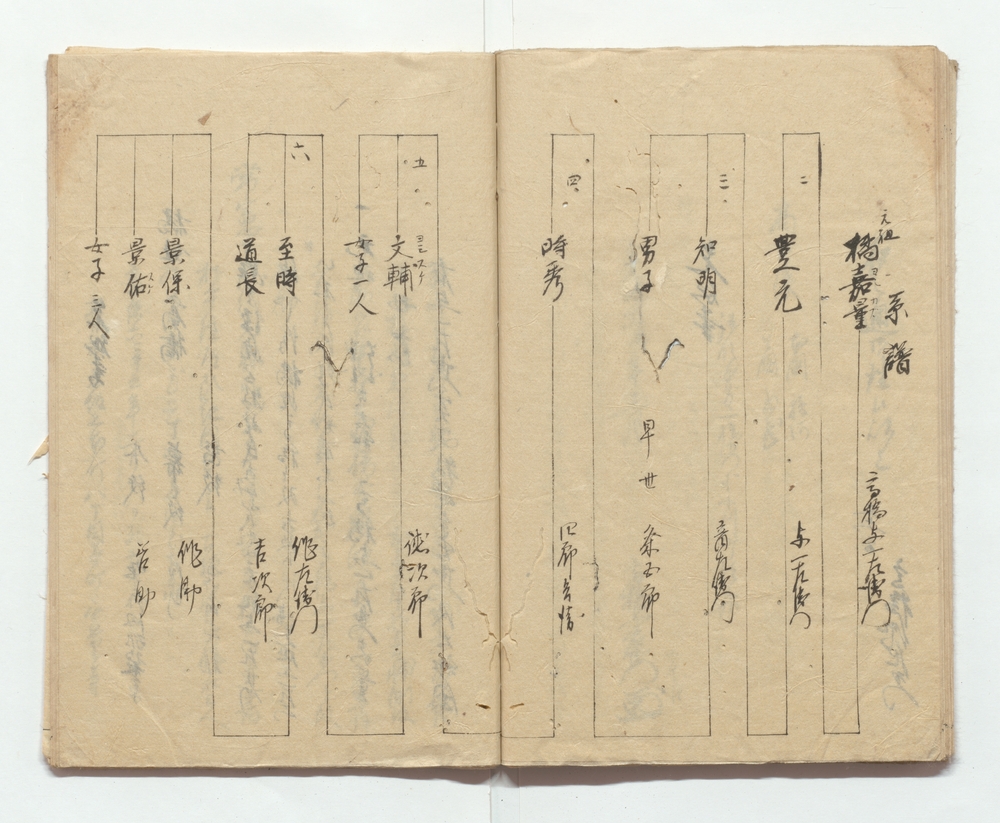 系譜
元祖
橋嘉量
高橋与一左衛門
二
豊元
与一左衛門
三
知明
男子
早世
粂五郎
四
時秀
五
文輔
徳次郎
女子一人
六
至時
作左衛門
道長
吉次郎
景保
作助
景佑
善助
女子三人